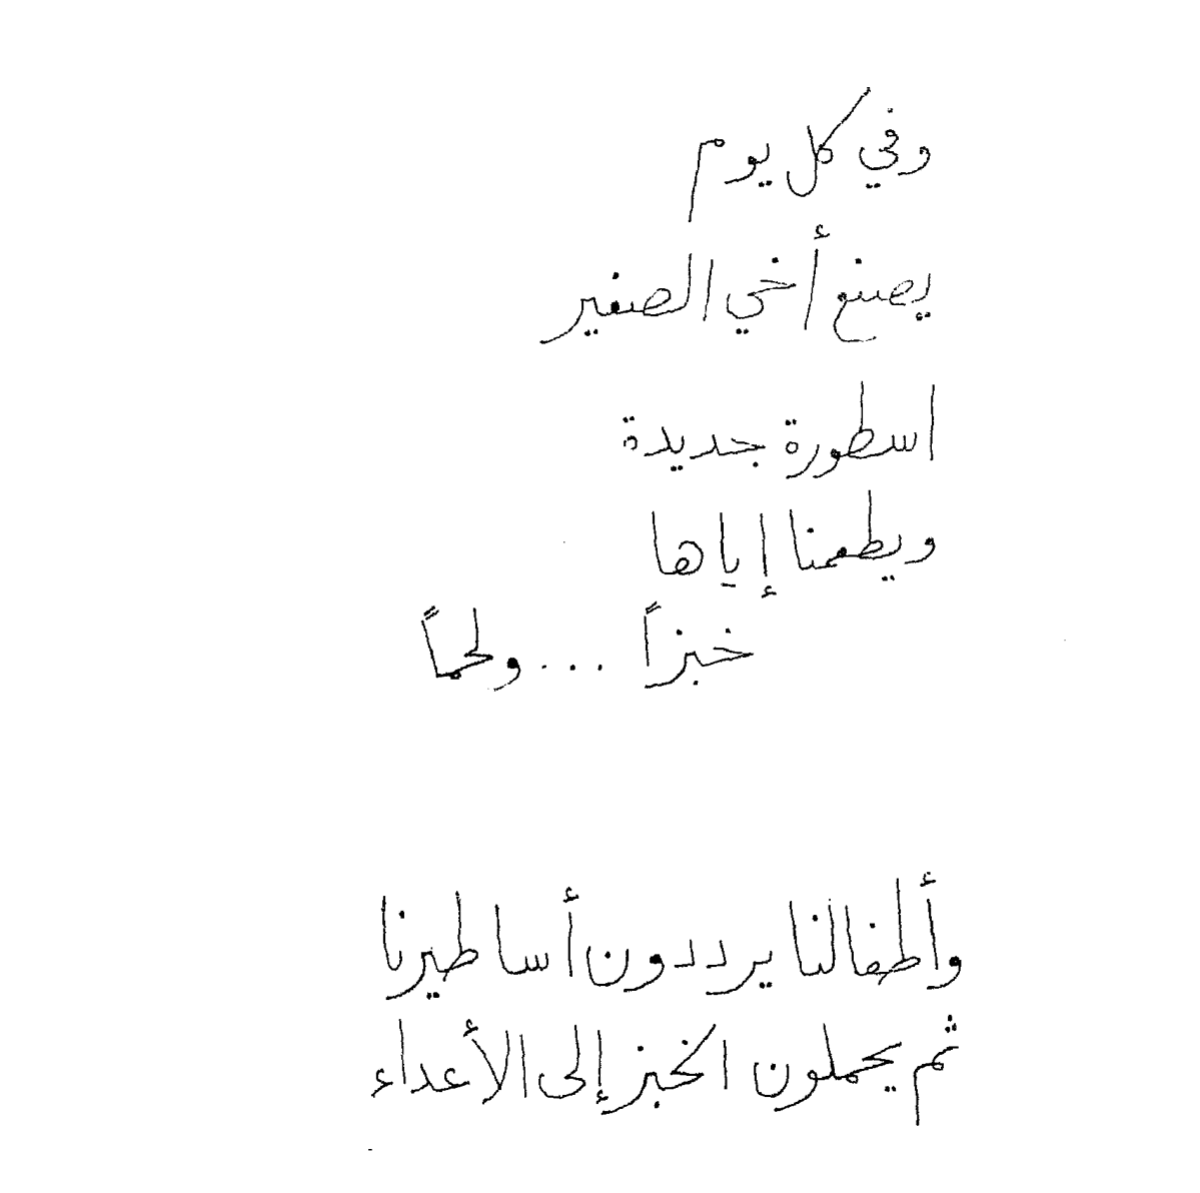 وفي كل يوم
يصنع أخي الصغير
اسطورة جديدة
ويطعمنا إياها
خبزاً ... ولحماً
وأطفالنا يرددون أساطيرنا
ثم يحملون الخبز إلى الأعداء